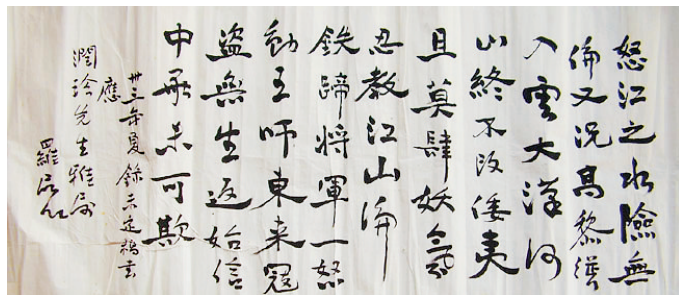 怒江之水險無
倫又況高黎貢
入雲大漢河
山終不改倭夷
且莫肆妖氛
忍教江山淪
鉄蹄將軍一怒
動王師東来寇
盜無生返始信
中華未可欺
卅三年夏錄未定稿
應
潤玲先生雅屬
羅